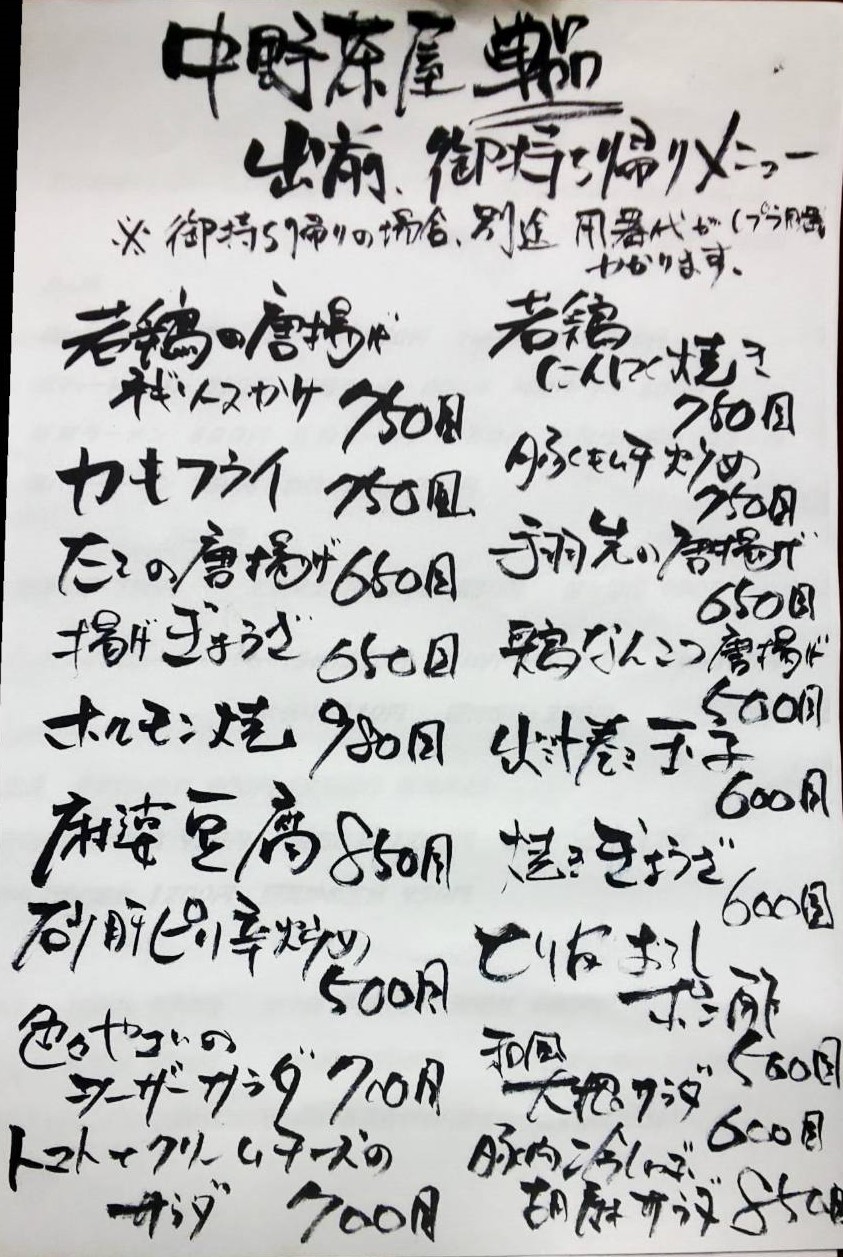 中野茶屋 単品
出前、御持ち帰りメニュー
※ 御持ち帰りの場合、別途 用器代が(プラ用器
かかります。
若鶏の唐揚げ
ネギソースかけ 750円
カキフライ 750円
たこの唐揚げ 650円
揚げぎょうざ 650円
ホルモン焼 980円
麻婆豆腐 850円
砂肝ピリ辛炒め
500円
色々やさいの
シーザーサラダ 700円
トマトとクリームチーズの
サラダ 700円
若鶏
にんにく焼き
750円
豚キムチ炒め
750円
手羽先の唐揚げ
650円
鶏なんこつ唐揚げ
500円
出汁巻き玉子
600円
焼きぎょうざ
600円
とり皮おろし
ポン酢
500円
和風
大根サラダ
600円
豚肉冷しゃぶ
胡麻サラダ 850円